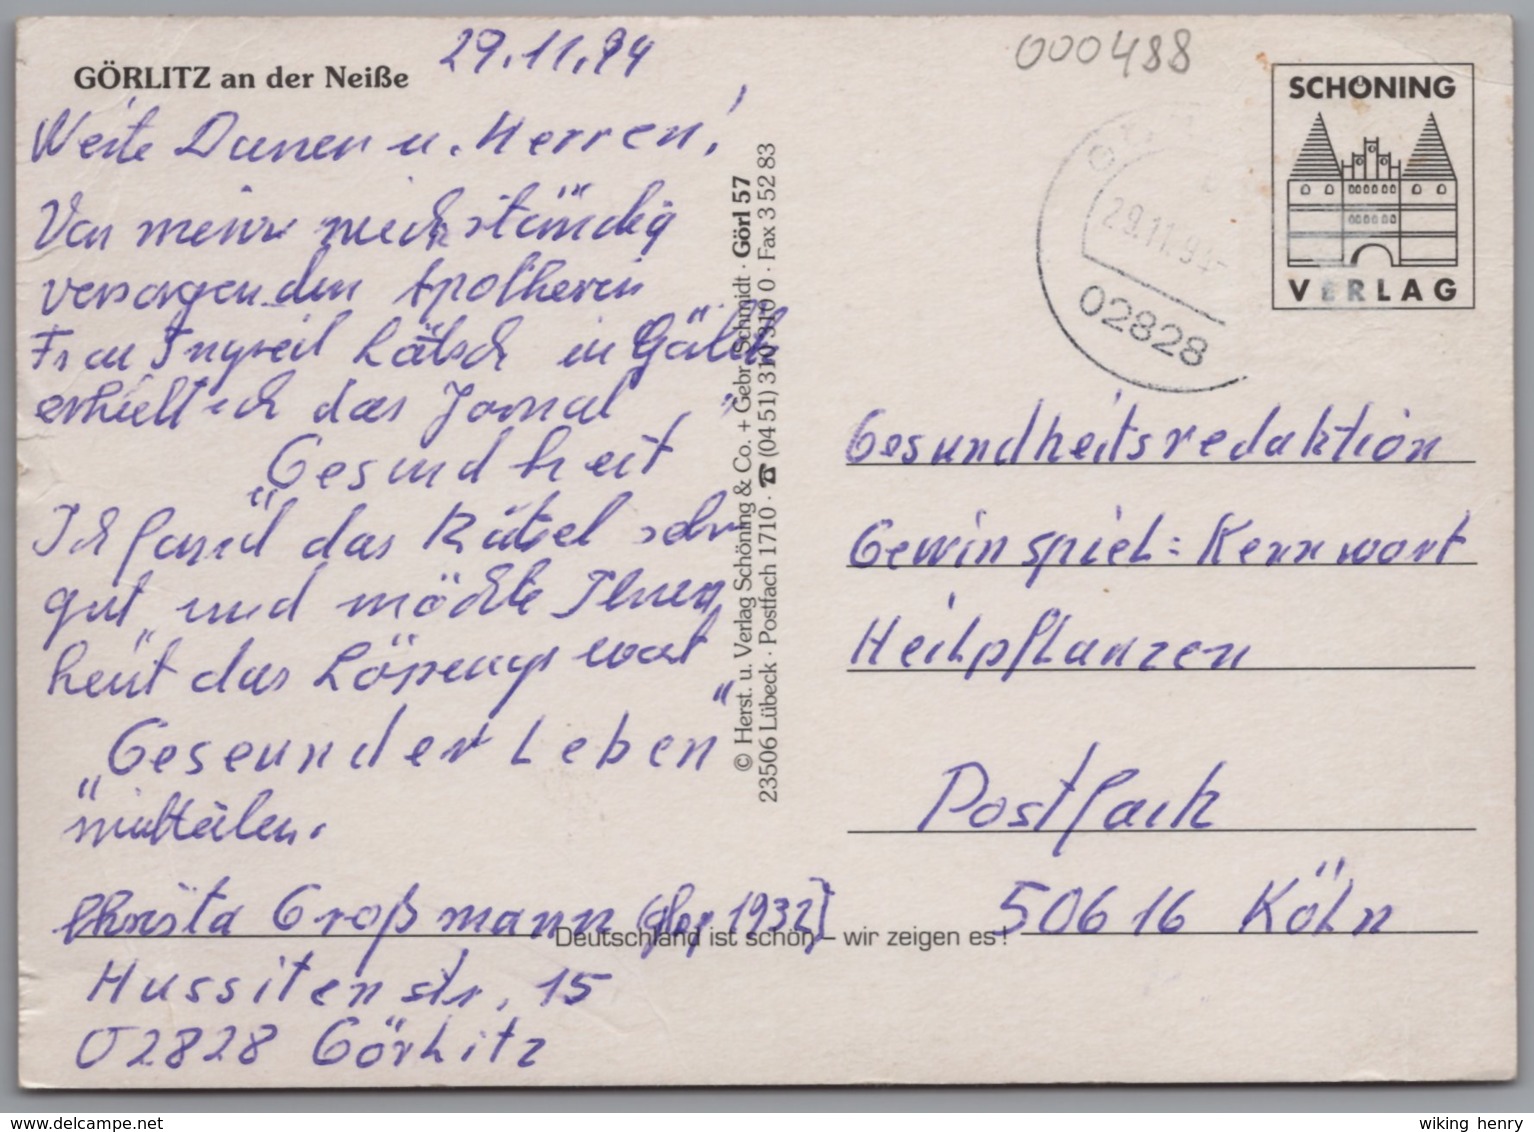 GÖRLITZ an der Neiße
29.11.94
Werte Damen u. Herren!
Von meiner
versorgenden Apotherin
Frau Ingreil Lätsch in Görlitz
erhielt ich das Jornal
„Gesundheit"
Ich fand das Rätsel sehr
gut und möchte Ihnen
heut das Lösungswort
„Geseunder Leben"
mitteilen.
Christa Großmann (geb. 1932)
Hussitenstr. 15
02828 Görlitz
© Herst. u. Verlag Schöning & Co. + Gebr. Schmidt · Görl 57
23506 Lübeck · Postfach 1710 · ☎ (04 51) 3 10 310 0 · Fax 3 52 83
Deutschland ist schön – wir zeigen es!
000488
29.11.94
02828
SCHÖNING
VERLAG
Gesundheitsredaktion
Gewinspiel: Kennwort
Heilpflanzen
Postfach
50616 Köln
wiking henry
www.delcampe.net